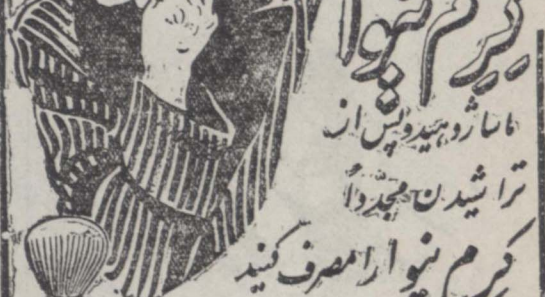 کرم نیوا
ماساژ دهید و پس از
تراشیدن مجدداً
کرم نیوا را مصرف کنید